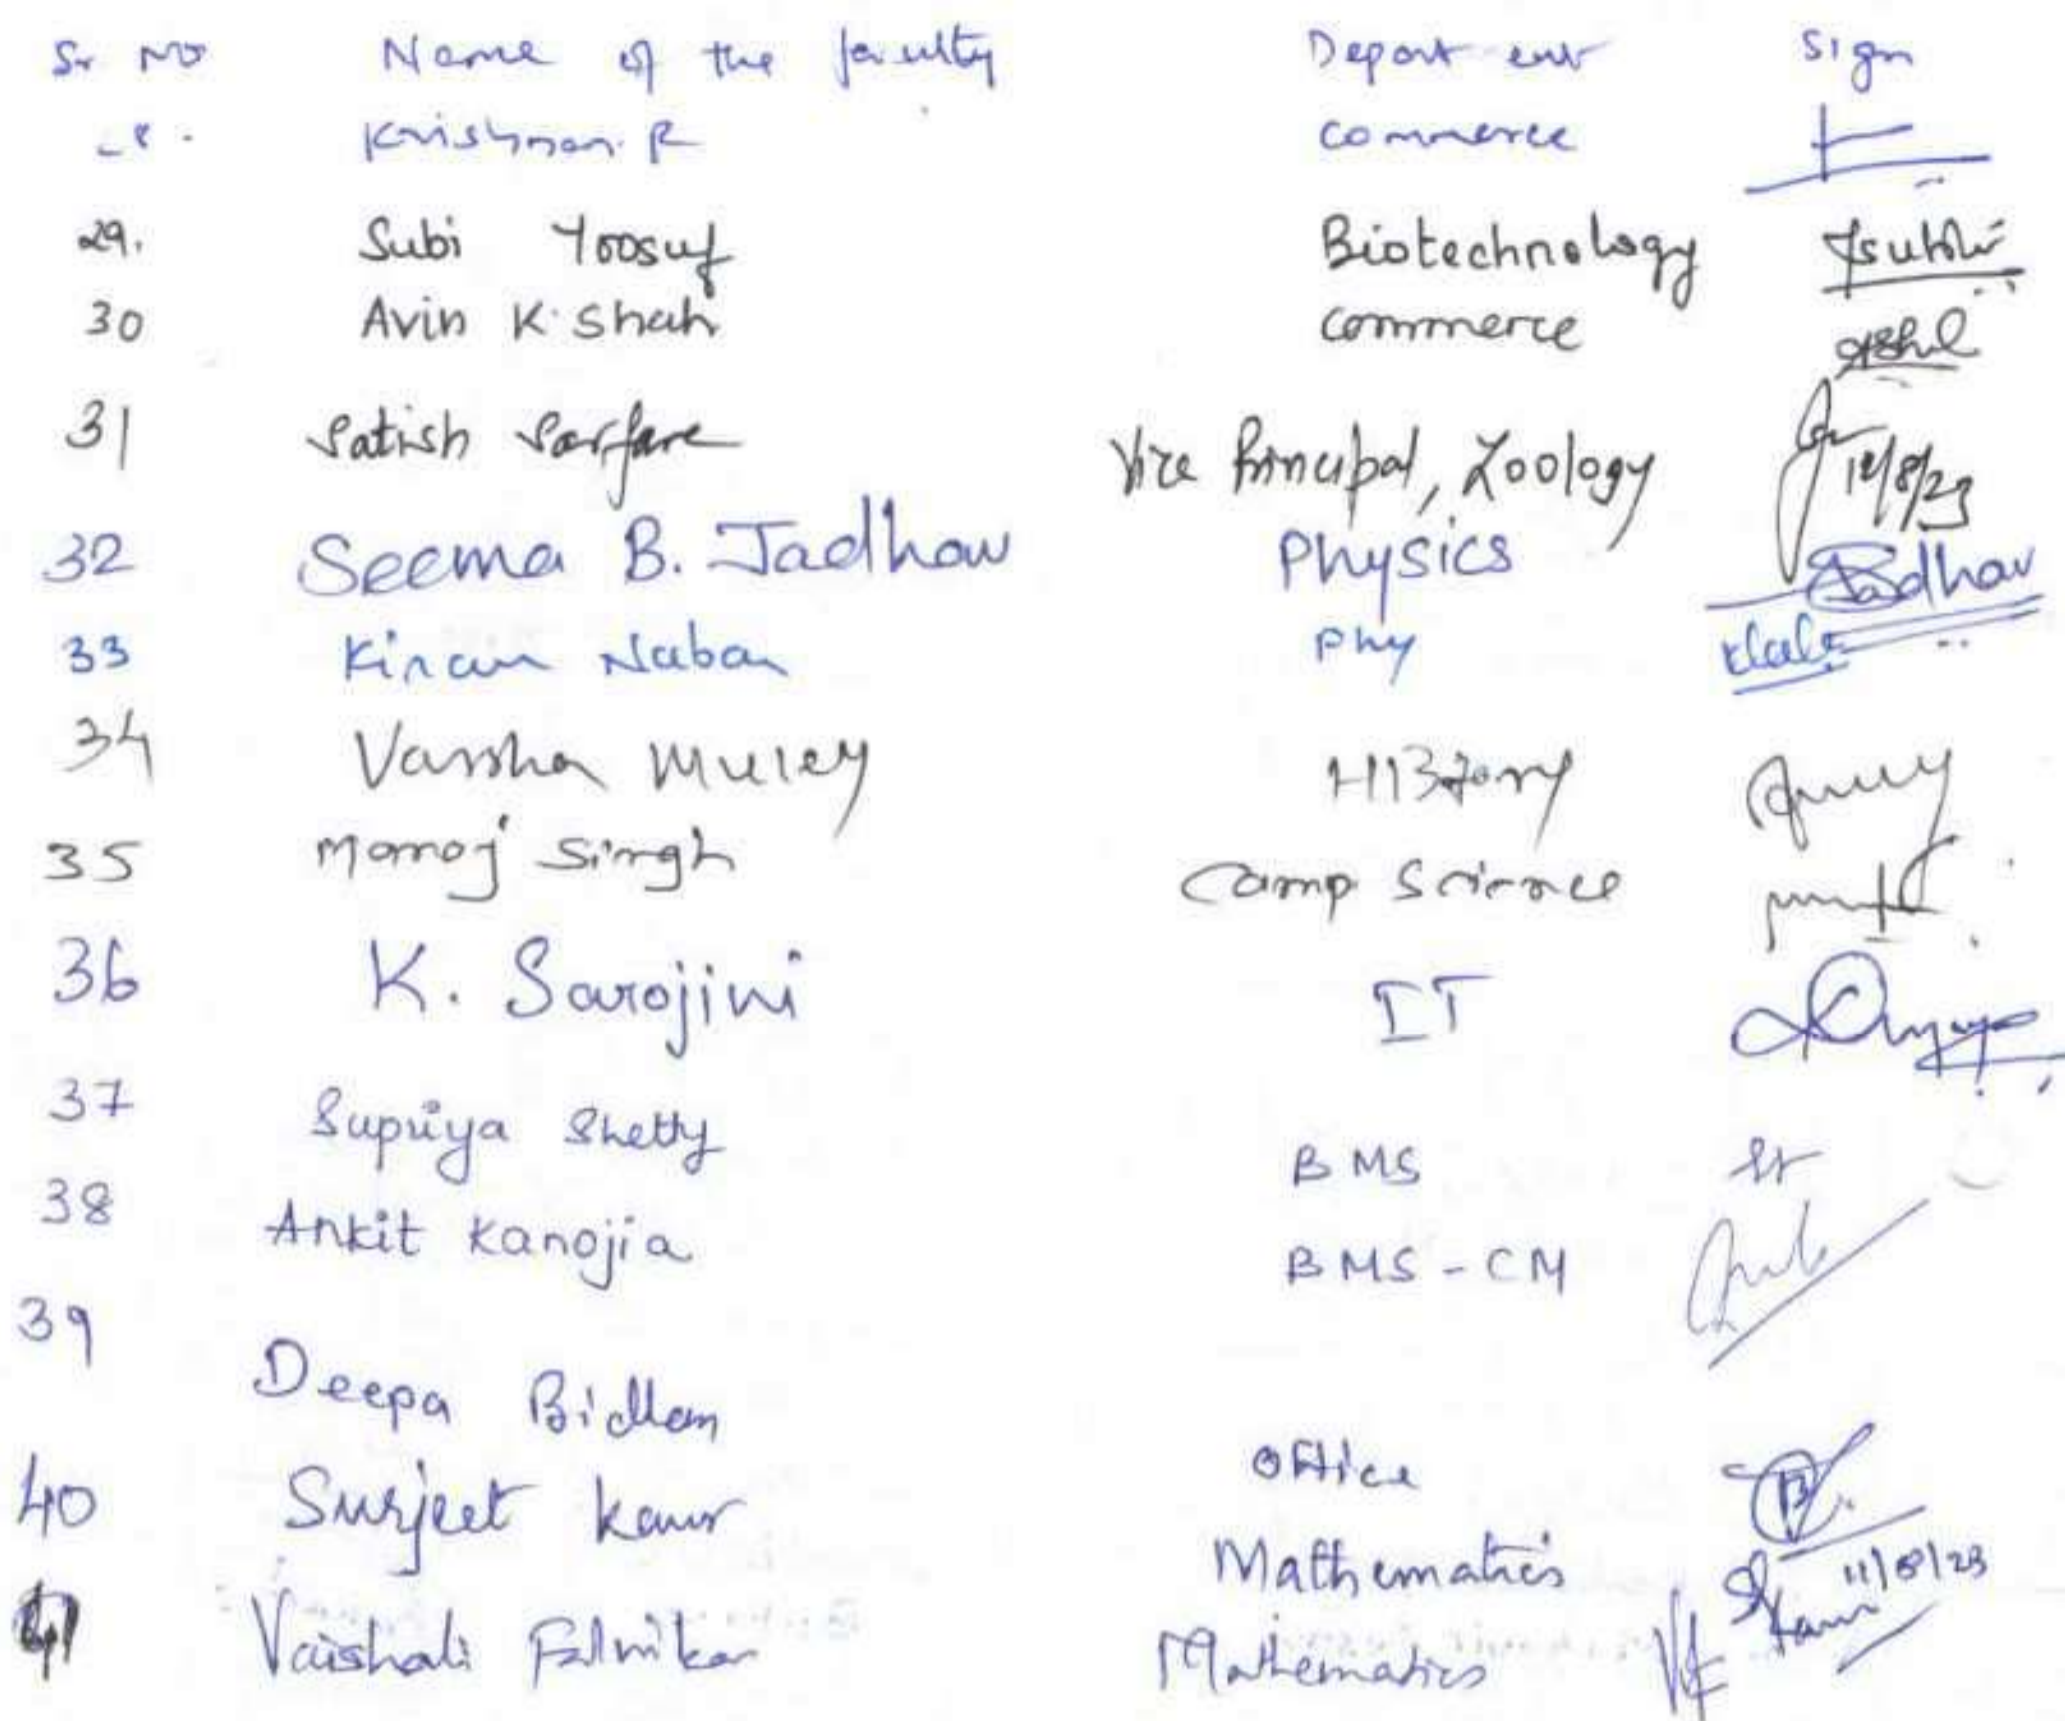 Sr No Name of the faculty Department Sign
Krishnan. R Commerce
29. Subi Yoosuf Biotechnology
30 Avin K. Shah Commerce
31 Satish Sarfare Vice Principal, Zoology 11/8/23
32 Seema B. Jadhav Physics Jadhav
33 Kiran Phy
34 Varsha Muley History
35 Manoj Singh Comp Science
36 K. Sarojini IT
37 Supriya Shetty BMS
38 Ankit Kanojia BMS - CM
39 Deepa Office
40 Surjeet Kaur Mathematics Kaur 11/8/23
41 Vaishali Mathematics